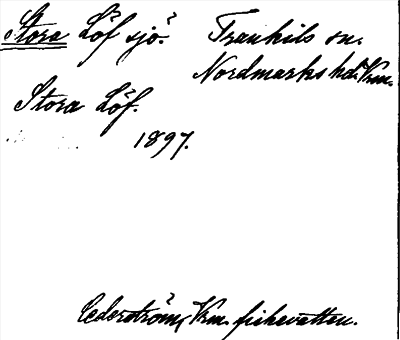 Stora Löf sjö. Trankils sn.
Nordmarks hd. Vrm.
Stora Löf.
1897.
Cederström, Vrm. fiskevatten.